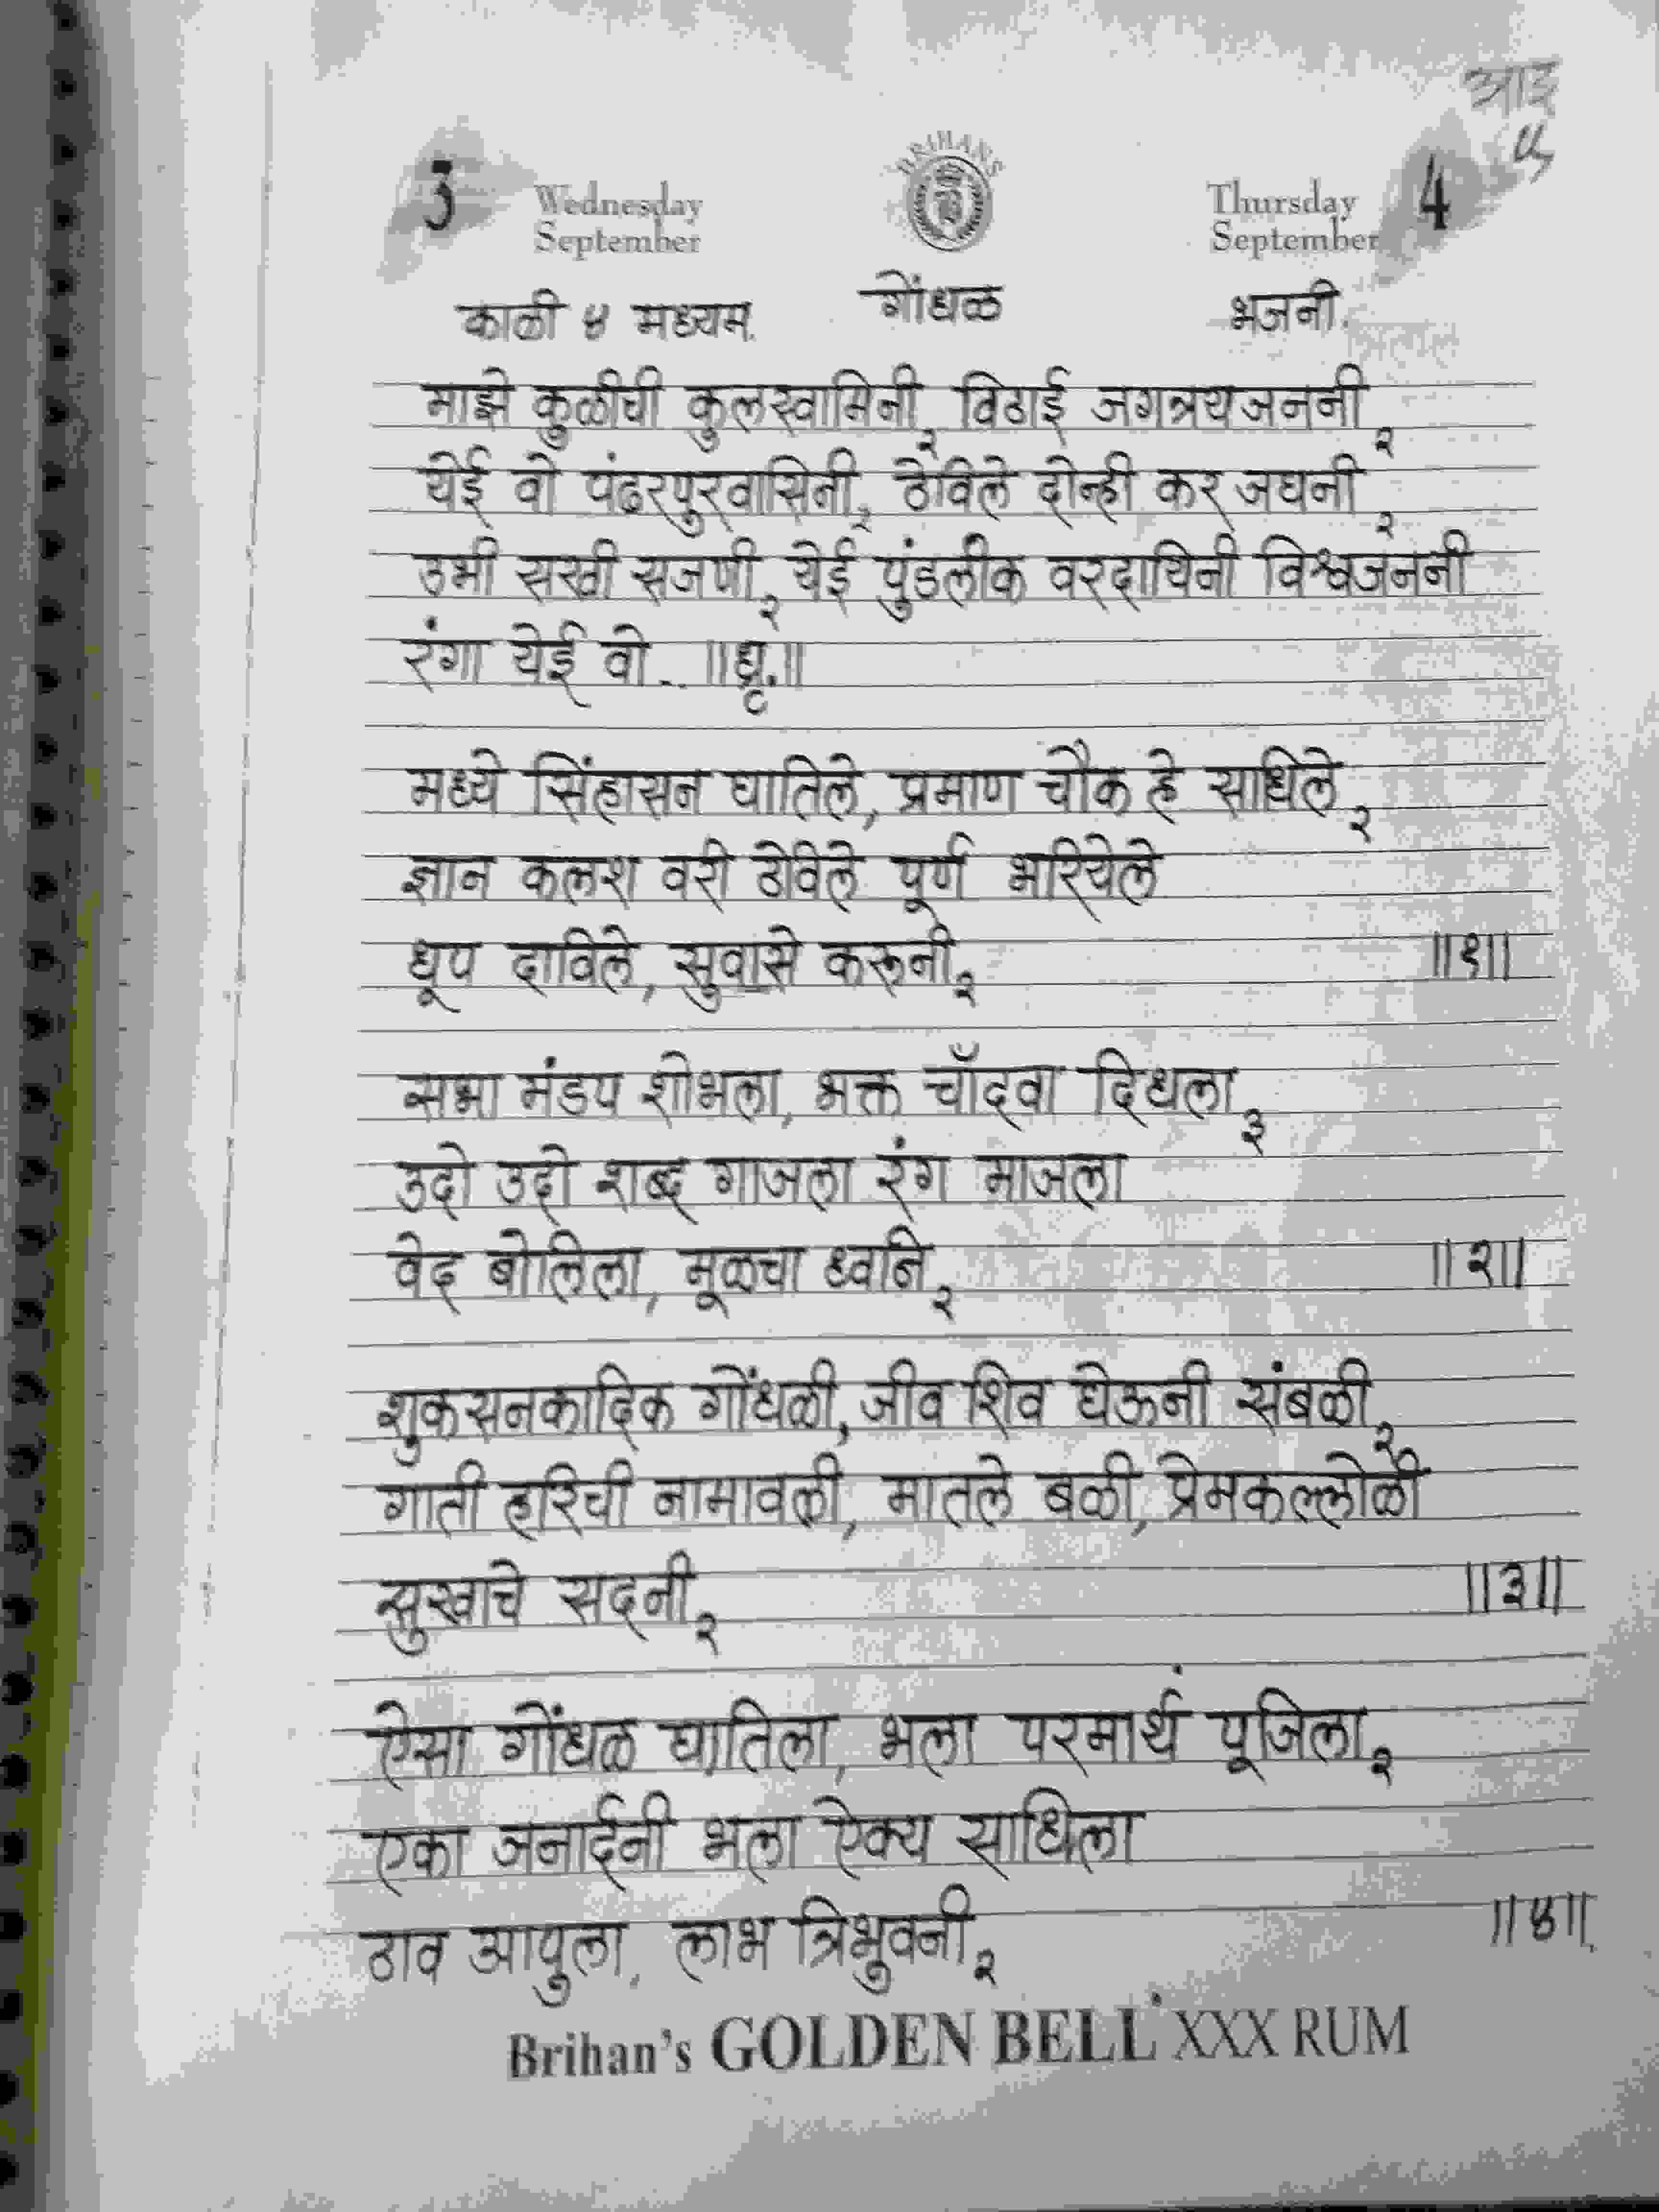 आई
५
3 Wednesday September BRIHANS Thursday September 4
काळी ४ मध्यम. गोंधळ भजनी.
माझे कुळीची कुलस्वामिनी२ विठाई जगत्रयजननी२
येई वो पंढरपुरवासिनी२, ठेविले दोन्ही कर जघनी२
उभी सखी सजणी२ येई पुंडलीक वरदायिनी विश्वजननी
रंगा येई वो.. ॥धृ.॥
मध्ये सिंहासन घातिले, प्रमाण चौक हे साधिले२
ज्ञान कलश वरी ठेविले पूर्ण भरियेले
धूप दाविले, सुवासे करूनी२ ॥१॥
सभा मंडप शोभला, भक्त चाँदवा दिधला३
उदो उदो शब्द गाजला रंग माजला
वेद बोलिला, मूळचा ध्वनि२ ॥२॥
शुकसनकादिक गोंधळी, जीव शिव घेऊनी संबळी२
गाती हरिची नामावली, मातले बळी, प्रेमकल्लोळी
सुखाचे सदनी२ ॥३॥
ऐसा गोंधळ घातिला, भला परमार्थ पूजिला२
एका जनार्दनी भला ऐक्य साधिला
ठाव आपुला, लाभ त्रिभुवनी२ ॥४॥
Brihan's GOLDEN BELL XXX RUM